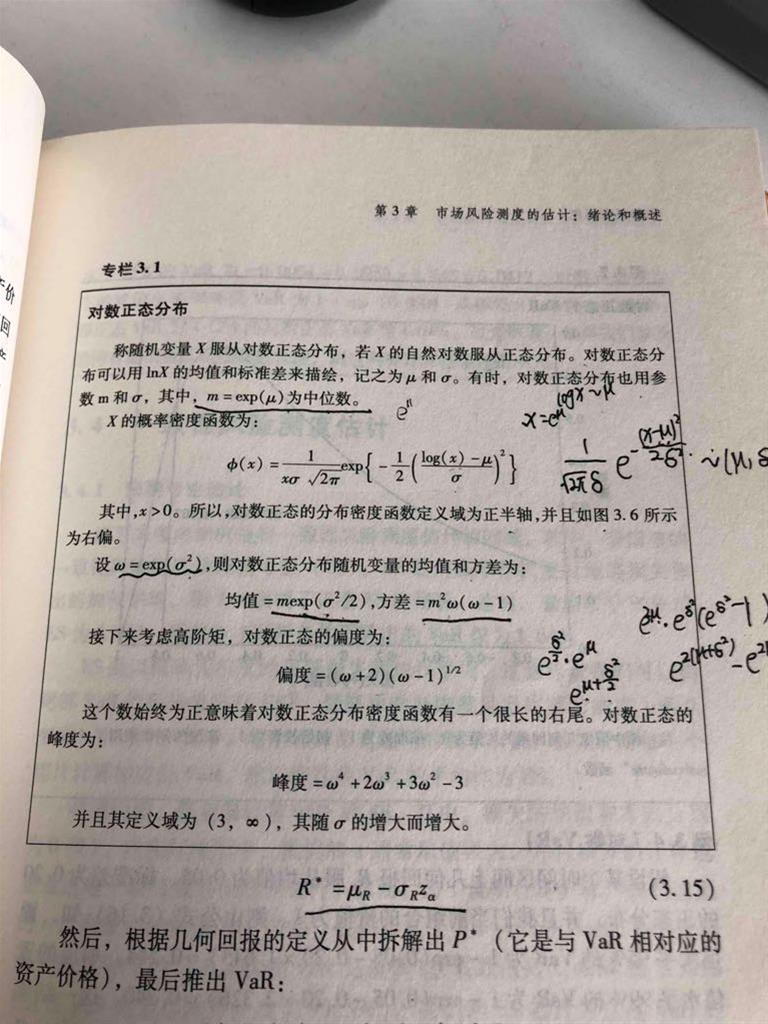 第3章 市场风险测度的估计：绪论和概述
专栏3.1
对数正态分布
称随机变量 X 服从对数正态分布，若 X 的自然对数服从正态分布。对数正态分
布可以用 lnX 的均值和标准差来描绘，记之为 μ 和 σ。有时，对数正态分布也用参
数 m 和 σ，其中，m = exp(μ)为中位数。
e^μ
logx ~ μ
x = e^μ
X 的概率密度函数为：
φ(x) = 1/(xσ√2π) exp{ -1/2 ( (log(x) - μ)/σ )² }
1/(√2π δ) e^{-(x-μ)²/2δ²} ~ (μ, δ
其中，x > 0。所以，对数正态的分布密度函数定义域为正半轴，并且如图 3.6 所示
为右偏。
设 ω = exp(σ²)，则对数正态分布随机变量的均值和方差为：
均值 = mexp(σ²/2)，方差 = m²ω(ω - 1)
e^{2μ} · e^{δ²}(e^{δ²} - 1)
接下来考虑高阶矩，对数正态的偏度为：
e^{δ²/2} · e^μ
e^{2(μ+δ²)} - e^{2
偏度 = (ω + 2)(ω - 1)^{1/2}
e^{μ + δ²/2}
这个数始终为正意味着对数正态分布密度函数有一个很长的右尾。对数正态的
峰度为：
峰度 = ω⁴ + 2ω³ + 3ω² - 3
并且其定义域为 (3, ∞)，其随 σ 的增大而增大。
R* = μ_R - σ_R z_α (3.15)
然后，根据几何回报的定义从中拆解出 P*（它是与 VaR 相对应的
资产价格），最后推出 VaR：
价
回